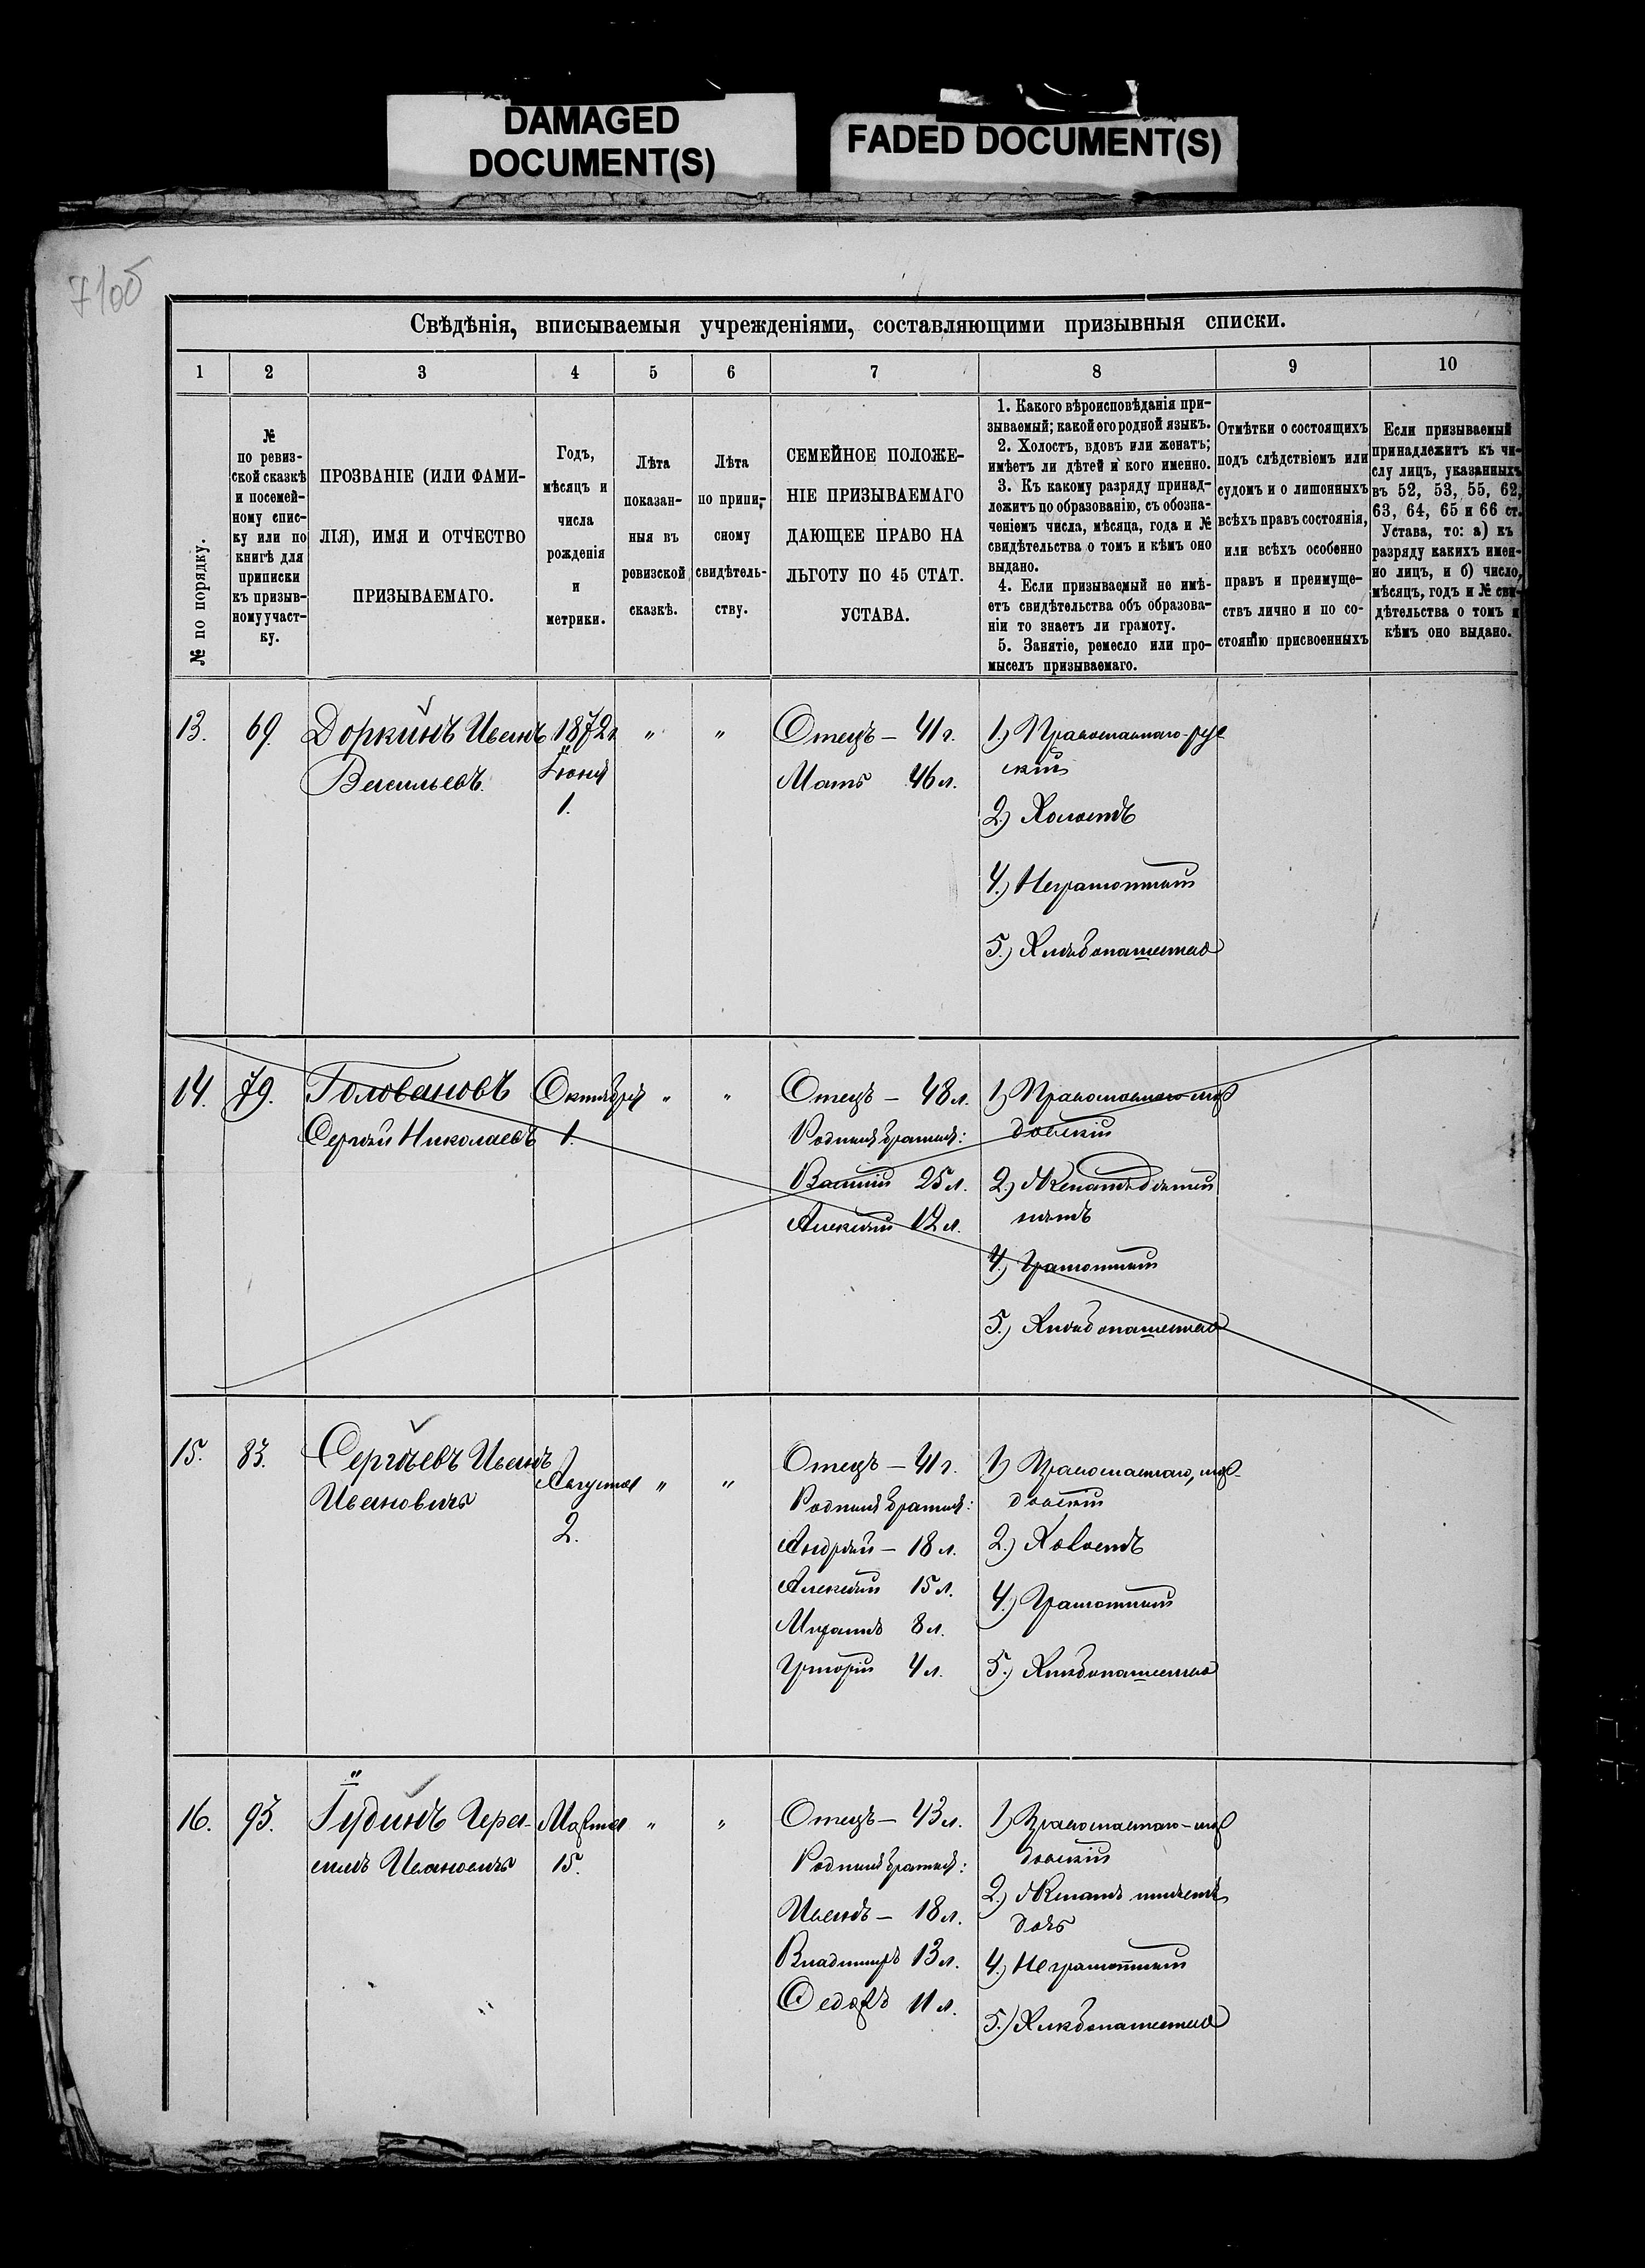 DAMAGED
DOCUMENT(S)
FADED DOCUMENT(S)
71об
Свѣдѣнія, вписываемыя учрежденіями, составляющими призывныя списки.
1
2
3
4
5
6
7
8
9
10
№ по порядку.
№
по ревиз-
ской сказкѣ
и посемей-
ному спис-
ку или по
книгѣ для
приписки
къ призыв-
ному участ-
ку.
ПРОЗВАНІЕ (ИЛИ ФАМИ-
ЛІЯ), ИМЯ И ОТЧЕСТВО
ПРИЗЫВАЕМАГО.
Годъ,
мѣсяцъ и
числа
рожденія
и
метрики.
Лѣта
показан-
ныя въ
ревизской
сказкѣ.
Лѣта
по припи-
сному
свидѣтель-
ству.
СЕМЕЙНОЕ ПОЛОЖЕ-
НІЕ ПРИЗЫВАЕМАГО
ДАЮЩЕЕ ПРАВО НА
ЛЬГОТУ ПО 45 СТАТ.
УСТАВА.
1. Какого вѣроисповѣданія при-
зываемый; какой его родной языкъ.
2. Холостъ, вдовъ или женатъ;
имѣетъ ли дѣтей и кого именно.
3. Къ какому разряду принад-
лежитъ по образованію, съ обозна-
ченіемъ числа, мѣсяца, года и №
свидѣтельства о томъ и кѣмъ оно
выдано.
4. Если призываемый не имѣ-
етъ свидѣтельства объ образова-
ніи то знаетъ ли грамоту.
5. Занятіе, ремесло или про-
мыселъ призываемаго.
Отмѣтки о состоящихъ
подъ слѣдствіемъ или
судомъ и о лишонныхъ
всѣхъ правъ состоянія,
или всѣхъ особенно
правъ и преимуще-
ствъ лично и по со-
стоянію присвоенныхъ
Если призываемый
принадлежитъ къ чи-
слу лицъ, указанныхъ
въ 52, 53, 55, 62,
63, 64, 65 и 66 ст.
Устава, то: а) къ
разряду какихъ имен-
но лицъ, и б) число,
мѣсяцъ, годъ и № сви-
дѣтельства о томъ и
кѣмъ оно выдано.
13.
69.
Доркинъ Иванъ
Васильевъ
1872г
Іюня
1.
"
"
Отецъ — 41 г.
Мать 46 л.
1.) Православнаго-рус
скій
2.) Холостъ
4.) Неграмотный
5.) Хлѣбопашество
14.
79.
Головановъ
Сергѣй Николаевъ
Октября
1.
"
"
Отецъ — 48 л.
Родныя братья:
Василій 25 л.
Алексѣй 12 л.
1) Православнаго-мор
довскій
2.) Женатъ дѣтей
нѣтъ
4.) Грамотный
5.) Хлѣбопашество
15.
83.
Сергѣевъ Иванъ
Ивановичъ
Августа
2.
"
"
Отецъ — 41 г.
Родныя братья:
Андрей — 18 л.
Алексѣй 15 л.
8 л.
Григорій 4 л.
1) Православнаго, мор-
довскій
2.) Холостъ
4.) Грамотный
5.) Хлѣбопашество
16.
93.
"
Гудинъ Гера-
симъ Ивановичъ
Марта
15.
"
"
Отецъ — 43 л.
Родныя братья:
Иванъ — 18 л.
Владиміръ 13 л.
Ѳедоръ 11 л.
1) Православнаго-мор
довскій
2.) Женатъ имѣетъ
дочь
4.) Неграмотный
5.) Хлѣбопашество